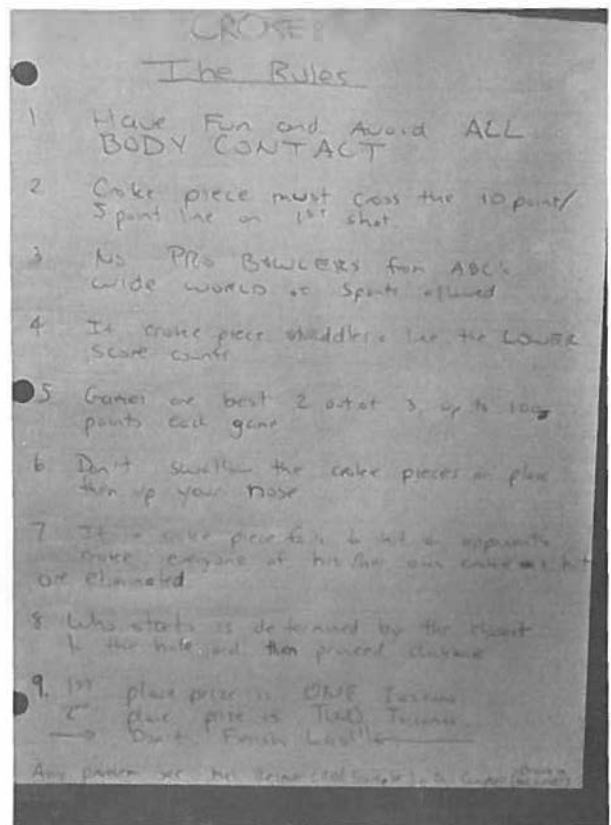 The Rules
1 Have Fun and Avoid ALL
BODY CONTACT
2 Croke piece must cross the 10 point/
5 point line on 1st shot
3 No PRO BOWLERS from ABC's
wide WORLD of Sports allowed
4 If croke piece straddles a line the LOWER
score counts
5 Games are best 2 out of 3, up to 100
points each game
6 Don't swallow the croke pieces or place
them up your nose
7 If a croke piece fails to hit an opponents
croke, everyone of his/her own hit
are eliminated
8 Who starts is determined by the closest
to the hole and then proceed
9. 1st place prize is ONE
2nd place prize is TWO
Don't Finish Last!!
Any problem see